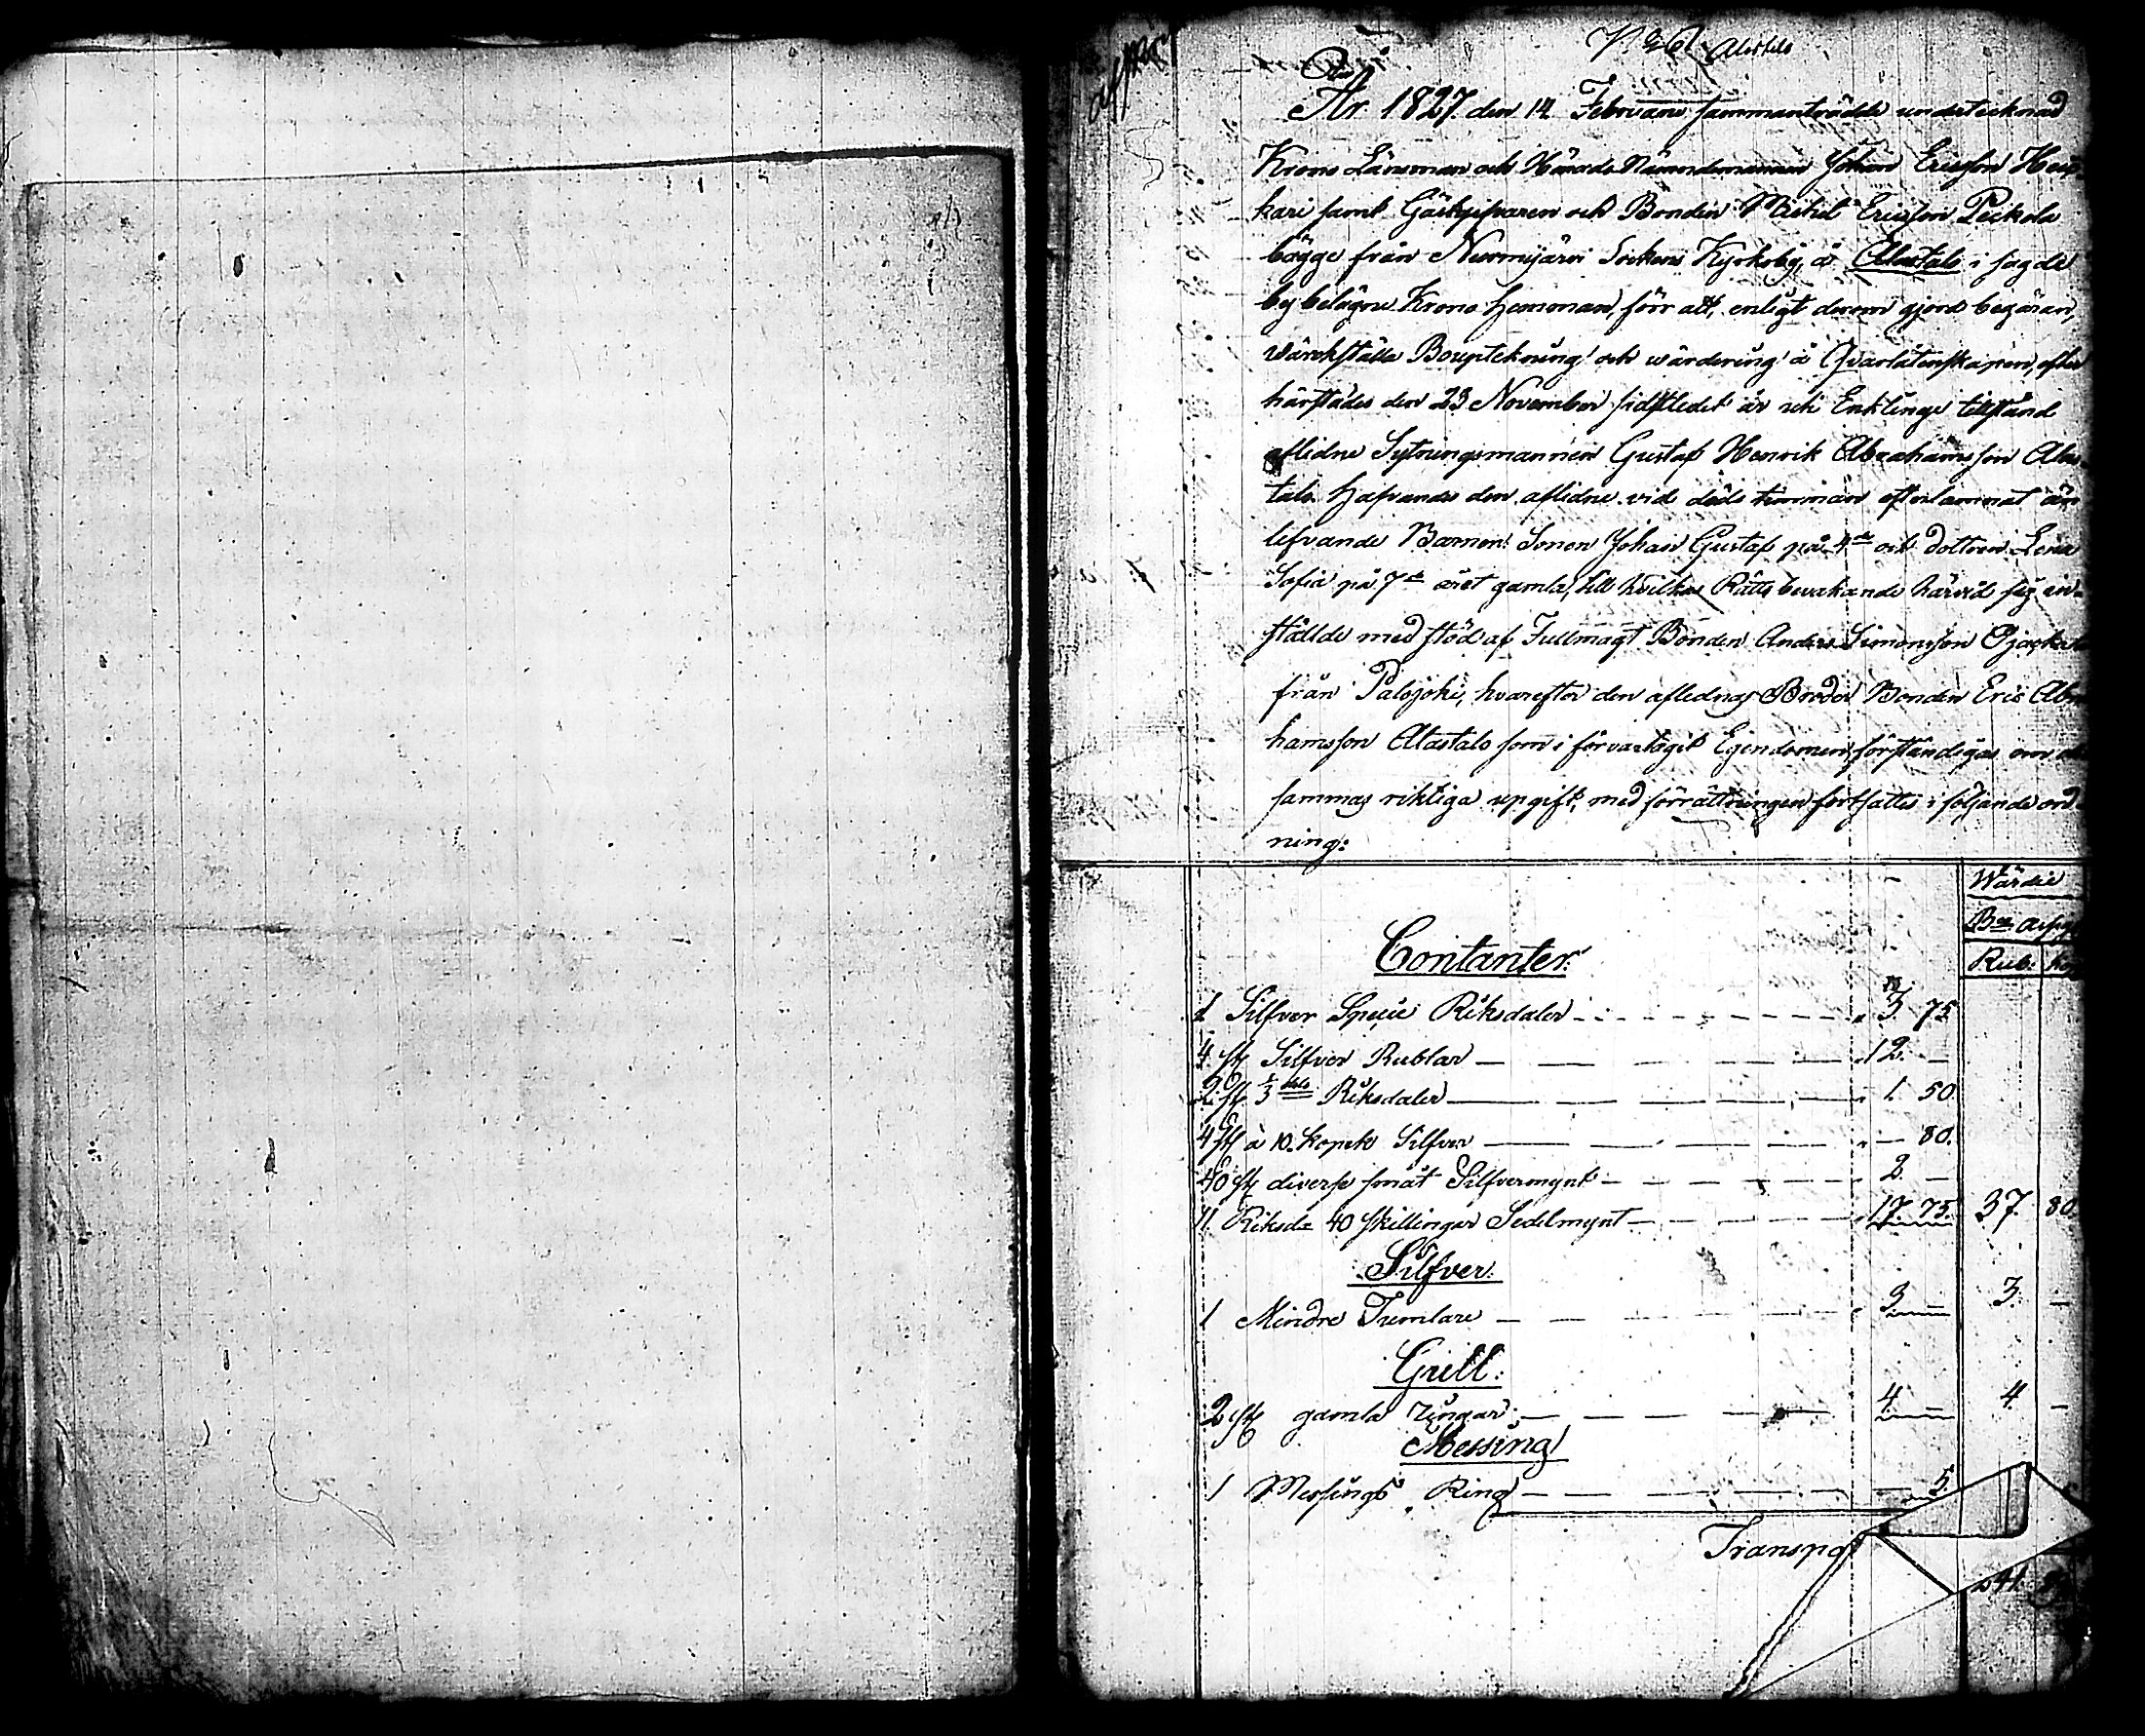 Alastalo
År 1827. den 14 Februarii sammanträdde undertecknad
Krono Länsman och Härads Nämndemannen Johan Ericsson Heis-
kari samt Gästgifvaren och Bonden Michel Ericsson Peckola
bägge från Nurmijärvi Sockens Kyrkoby, å Alastalo i sagde
by belägne Krono hemman, förr att, enligt derom gjord begäran,
värckställa Bouptekning och wärdering å Qvarlåtenskapen, efter
härstädes den 23 November sidstledet år uti Enklinge tillstånd
aflidne Sytningsmannen Gustaf Henrik Abrahamsson Alas-
talo. hafvandes den aflidne vid döds timman efterlämnat än
lefvande Barnen: Sonen Johan Gustaf på 4de och dottren Lena
Sofia på 7de året gamla, till hvilkas Rätts bevakande härvid sig in-
ställde med stöd af Fullmagt Bonden Anders Simonsson
från Palojoki, hvarefter den aflednas Broder Bonden Eric Abra
hamsson Alastalo som i förvar tagit Egendomen, förständigas om
sammas riktiga upgift, med förrättningen fortsattes i följande ord-
ning:
Wärde
Bco Assig
Rub. kop
Contanter:
1 Silfver Specie Riksdaler 3 75
4 st Silfver Rublar 12. —
2 st 1/3 dels Riksdaler 1 50
4 st à 10. kopek Silfver — 80.
40 st diverse smått Silfvermynt 2 —
11 Riksd. 40 skillingar Sedelmynt 17. 75. 37 80
Silfver.
1 Mindre Tumlare 3. — 3. —
Gull:
2 st gamla ringar 4 — 4 —
Messing
1 Messings Ring 5.
Transport